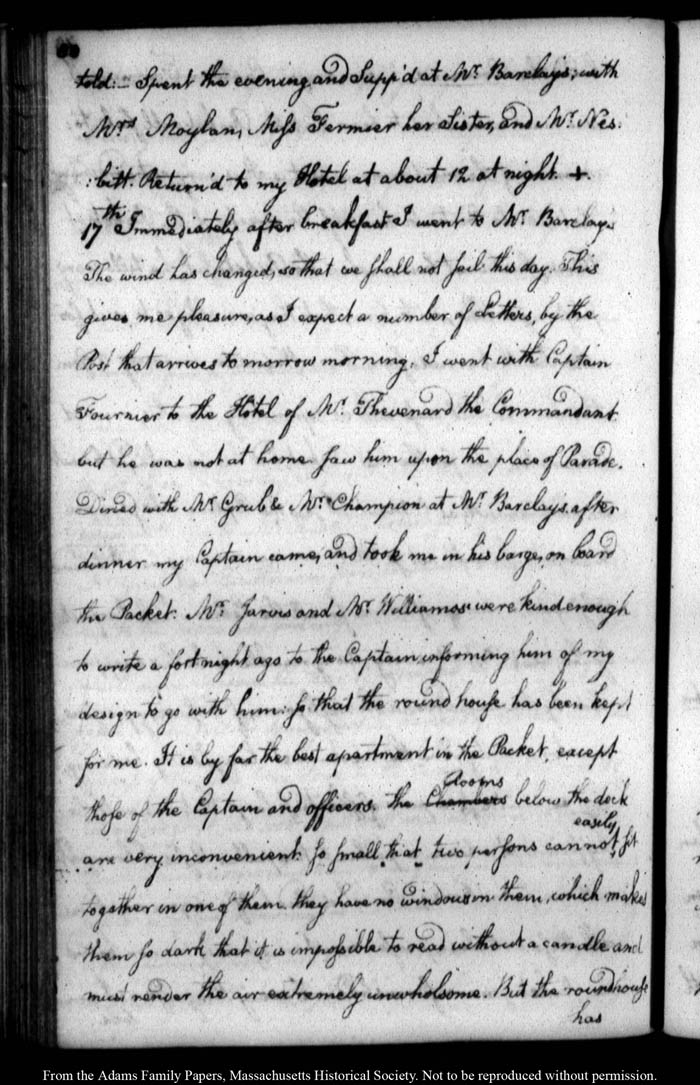 told:— Spent the evening and Supp'd at Mr. Barclay's; with
Mrs. Moylan, Miss Fermier her Sister, and Mr. Nes:
:bitt. Return'd to my Hotel at about 12 at night. +.
17th Immediately after breakfast I went to Mr. Barclay's
The wind has changed, so that we shall not sail this day. This
gives me pleasure, as I expect a number of Letters, by the
Post that arrives to morrow morning. I went with Captain
Fournier to the Hotel of Mr. Thevenard the Commandant
but he was not at home saw him upon the place of Parade.
Dined with Mr. Grub & Mr. Champion at Mr. Barclay's. after
dinner my Captain came, and took me in his barge, on board
the Packet. Mr. Jarvis and Mr. Williamos were kind enough
to write a fortnight ago to the Captain informing him of my
design to go with him: so that the round house has been kept
for me. It is by far the best apartment in the Packet, except
those of the Captain and officers. The Chambers rooms below the deck
are very inconvenient: so small that two persons cannot easily sit
together in one of them. they have no windows in them, which makes
them so dark that it is impossible to read without a candle and
must render the air extremely unwholsome. But the roundhouse
has
From the Adams Family Papers, Massachusetts Historical Society. Not to be reproduced without permission.